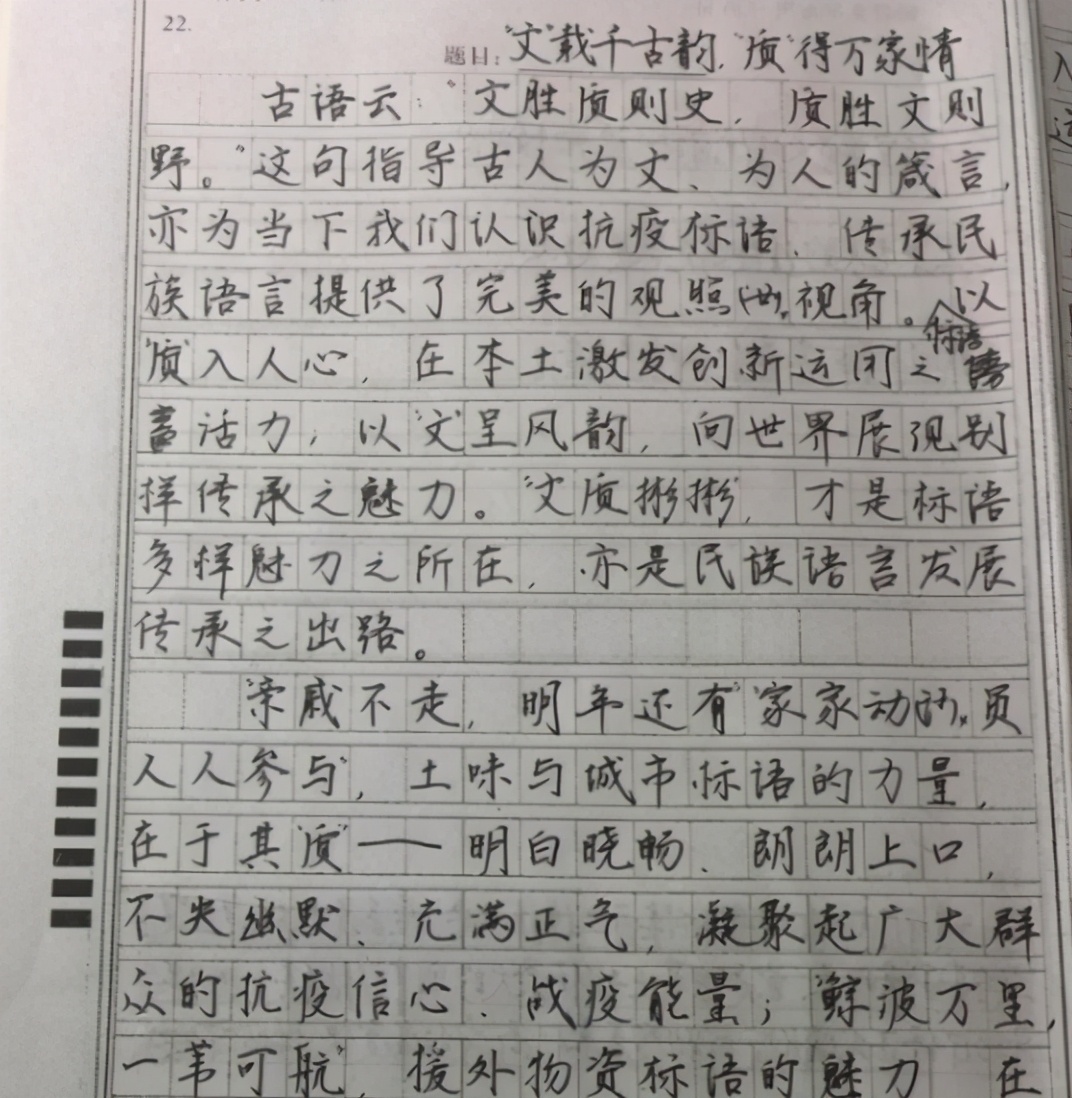 22.
题目："文"载千古韵，"质"得万家情
古语云："文胜质则史，质胜文则
野。"这句指导古人为文、为人的箴言，
亦为当下我们认识抗疫标语、传承民
族语言提供了完美的观照视角。以
"质"入人心，在本土激发创新运用之
标语
蓄活力；以"文"呈风韵，向世界展现别
样传承之魅力。"文质彬彬"，才是标语
多样魅力之所在，亦是民族语言发展
传承之出路。
"亲戚不走，明年还有""家家动员
人人参与"，土味与城市标语的力量，
在于其"质"——明白晓畅、朗朗上口，
不失幽默、充满正气，凝聚起广大群
众的抗疫信心、战疫能量；"鲸波万里，
一苇可航"，援外物资标语的魅力 在
入